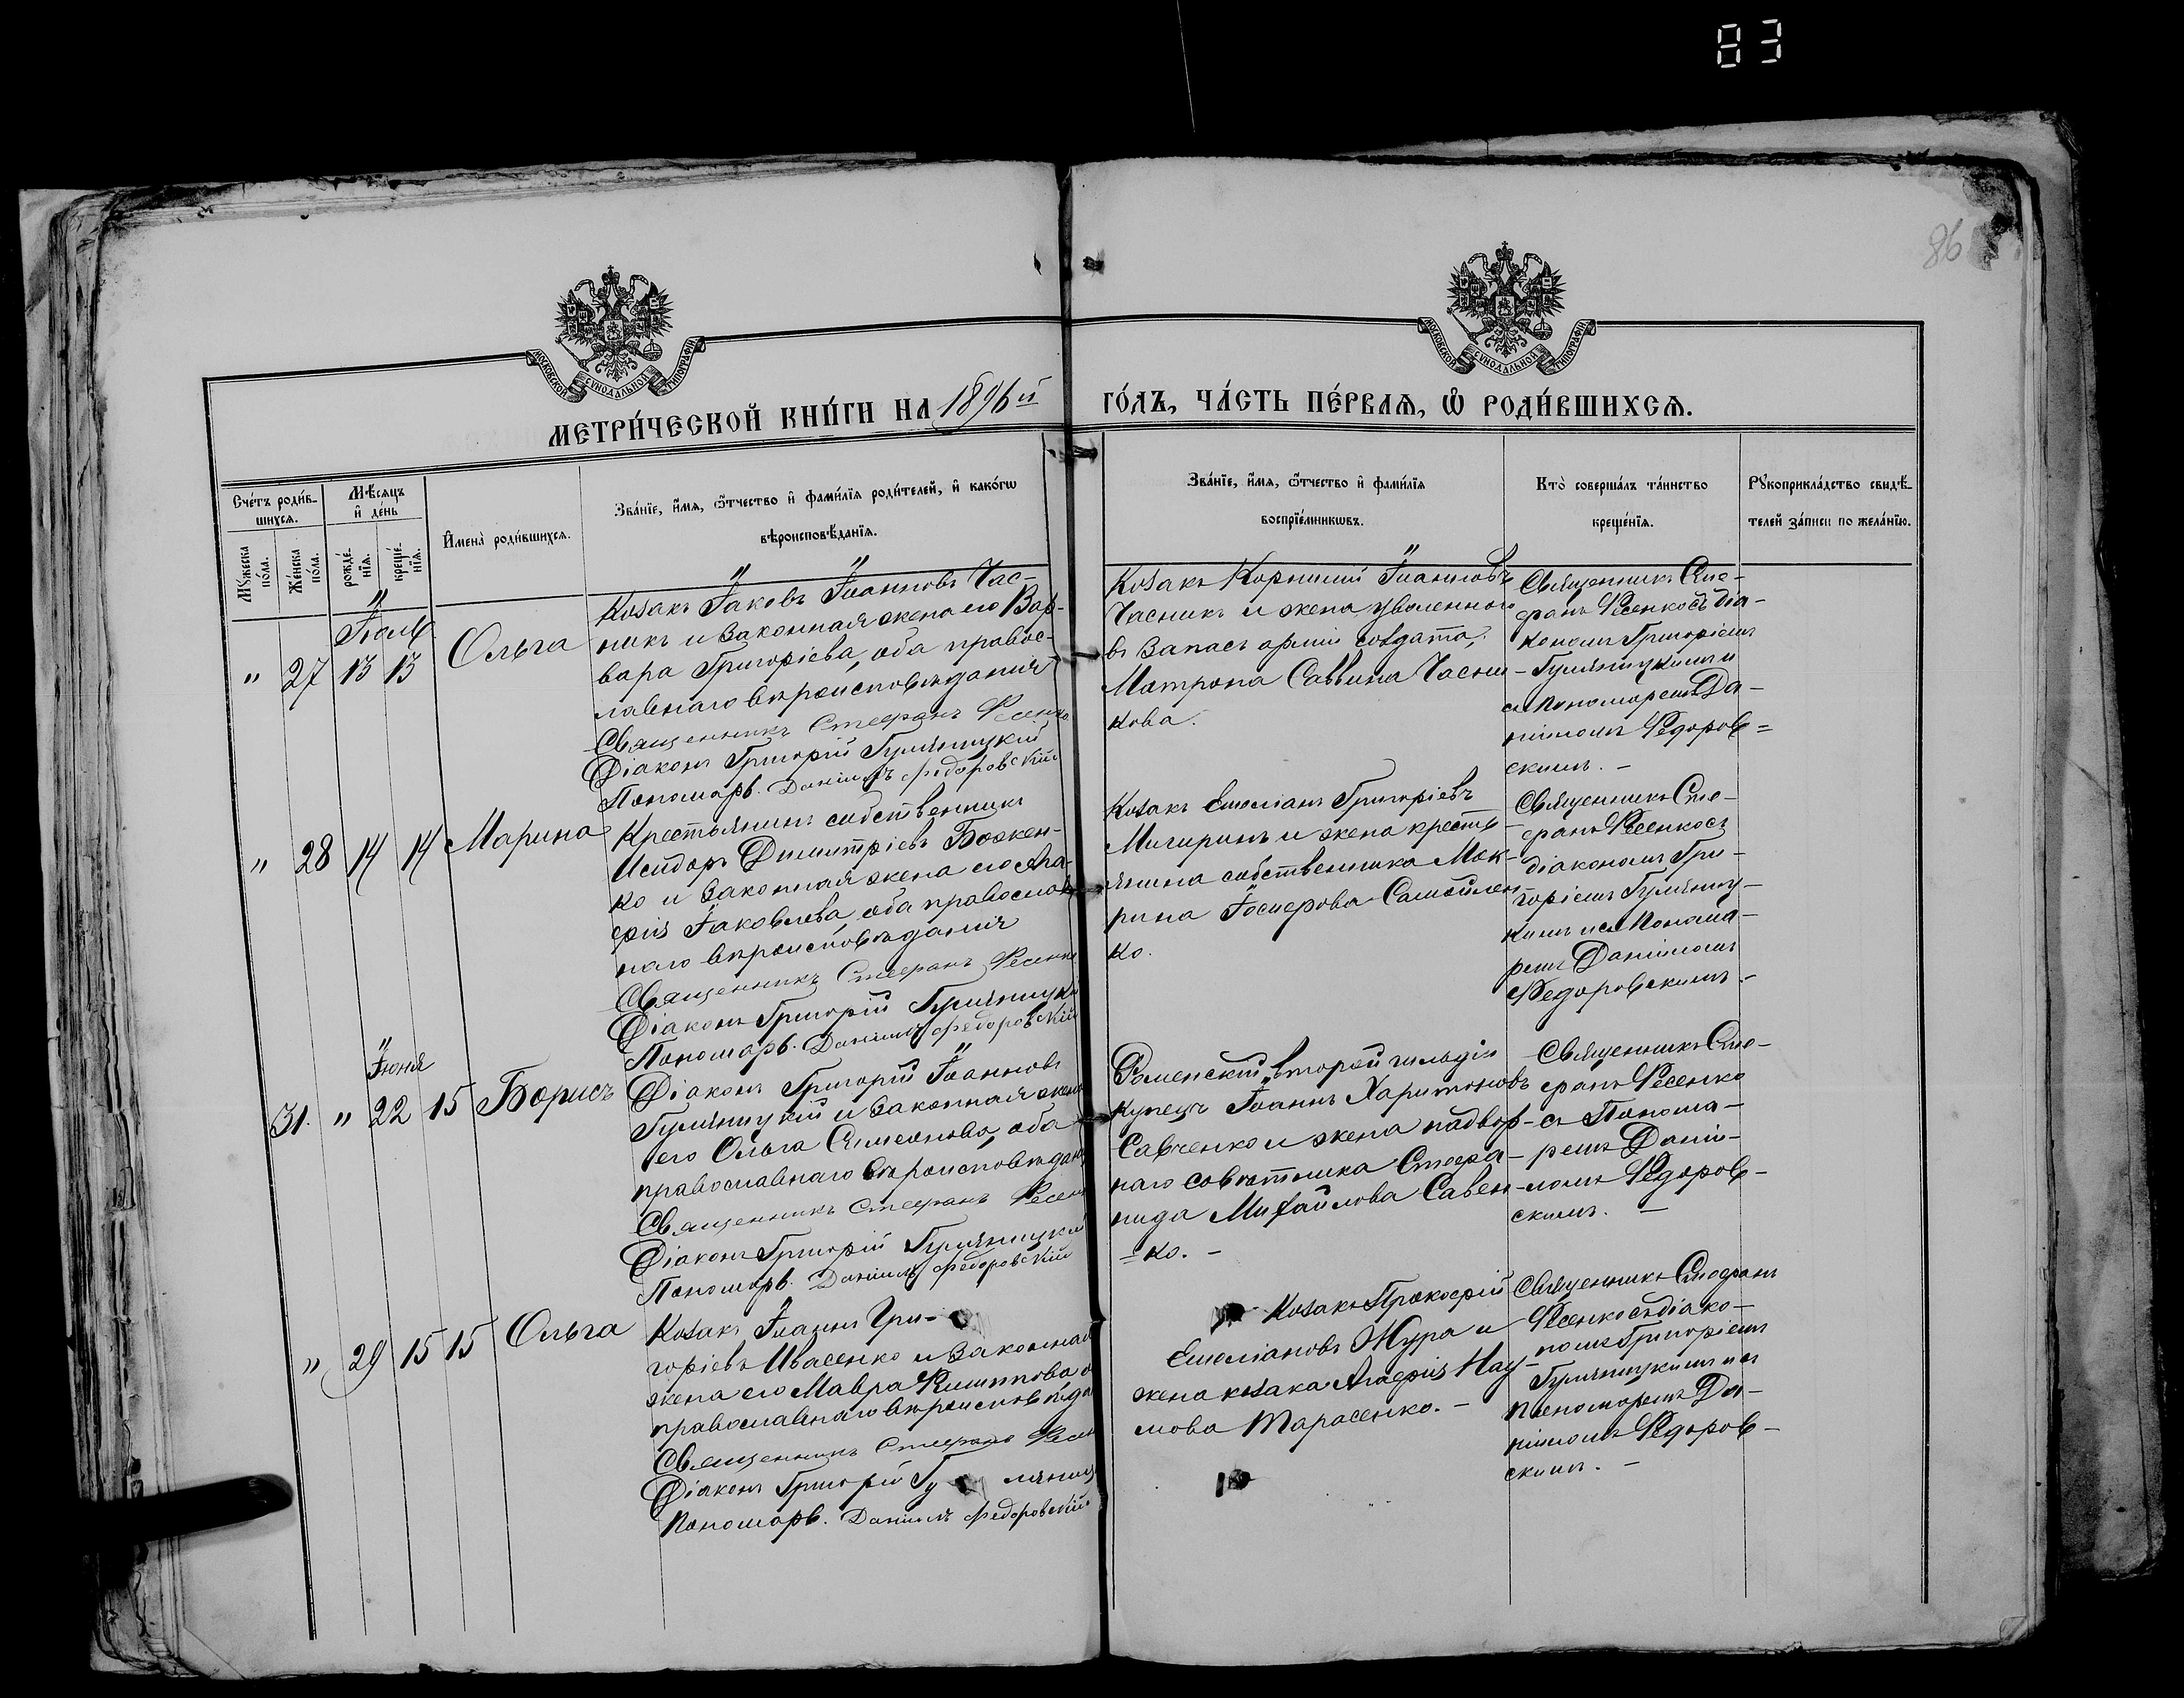 83
86
МОСКОВСКОЙ СУНОДАЛЬНОЙ ТИПОГРАФІИ
МОСКОВСКОЙ СУНОДАЛЬНОЙ ТИПОГРАФІИ
МЕТРИ́ЧЕСКОЙ КНИ́ГИ НА 1896й ГО́ДЪ, ЧА́СТЬ ПЕ́РВАѦ, Ѡ҆ РОДИ́ВШИХСѦ.
Сче́тъ роди́в-
шихсѧ.
Мꙋ́жеска по́ла.
Же́нска по́ла.
Мѣ́сѧцъ и҆ де́нь
рожде́-
нїѧ.
креще́-
нїѧ.
И҆мена̀ роди́вшихсѧ.
Зва́нїе, и҆́мѧ, ѻ҆́тчество и҆ фами́лїѧ роди́телей, и҆ како́гѡ
вѣроисповѣ́данїѧ.
Зва́нїе, и҆́мѧ, ѻ҆́тчество и҆ фами́лїѧ
воспрїе́мникѡвъ.
Кто̀ соверша́лъ та́инство
креще́нїѧ.
Рꙋкоприкла́дство свидѣ́-
телей за́писи по жела́нїю.
Іюля
" 27 13 13
Ольга
Козакъ Іаковъ Іоанновъ Час-
никъ и законная жена его Вар-
вара Григоріева, оба правос-
лавнаго вѣроисповѣданія
Священникъ Стефанъ Фесенко
Діаконъ Григорій Гуляницкій
Пономарь Даніилъ Федоровскій
Козакъ Корнилій Іоанновъ
Часникъ и жена уволеннаго
въ запасъ арміи солдата,
Матрона Саввина Часни-
кова.
Священникъ Сте-
фанъ Фесенко съ діа-
кономъ Григоріемъ
Гуляницкимъ и
съ пономаремъ Да-
ніиломъ Федоров=
скимъ. -
" 28 14 14
Марина
Крестьянинъ собственникъ
Исидоръ Димитріевъ Божен-
ко и законная жена его Ага-
фія Іаковлева, оба православ-
наго вѣроисповѣданія
Священникъ Стефанъ Фесенко
Діаконъ Григорій Гуляницкій
Пономарь Даніилъ Федоровскій
Козакъ Емеліанъ Григоріевъ
Мигиринъ и жена кресть-
янина собственника Мок-
рина Іосифова Самойлен-
ко.
Священникъ Сте-
фанъ Фесенко съ
діакономъ Гри-
горіемъ Гуляниц-
кимъ и съ понома-
ремъ Даніиломъ
Федоровскимъ. -
Іюня
31. " 22 15
Борисъ
Діаконъ Григорій Іоанновъ
Гуляницкій и законная жена
его Ольга Симеонова, оба
православнаго вѣроисповѣдан
Священникъ Стефанъ Фесен
Діаконъ Григорій Гуляницкій
Пономарь Даніилъ Федоровскій
Роменскій второй гильдіи
купецъ Іоаннъ Харитоновъ
Савченко и жена надвор-
наго совѣтника Стефа-
нида Михайлова Савен-
=ко. -
Священникъ Сте-
фанъ Фесенко
съ Понома-
ремъ Дани-
ломъ Федоров-
скимъ. -
" 29 15 15
Ольга
Козакъ Іоаннъ Гри-
горіевъ Ивасенко и законная
жена его Мавра Филиппова о
православнаго вѣроисповѣда
Священникъ Стефанъ Фесен
Діаконъ Григорій Гу ляниц
Пономарь. Даніилъ Федоровскій
Козакъ Прокофій
Емеліановъ Жура и
жена козака Агафія Нау-
мова Тарасенко. -
Священникъ Стефанъ
Фесенко съ діако-
номъ Григоріемъ
Гуляницкимъ и съ
пономаремъ Да-
ніиломъ Федоров-
скимъ. -